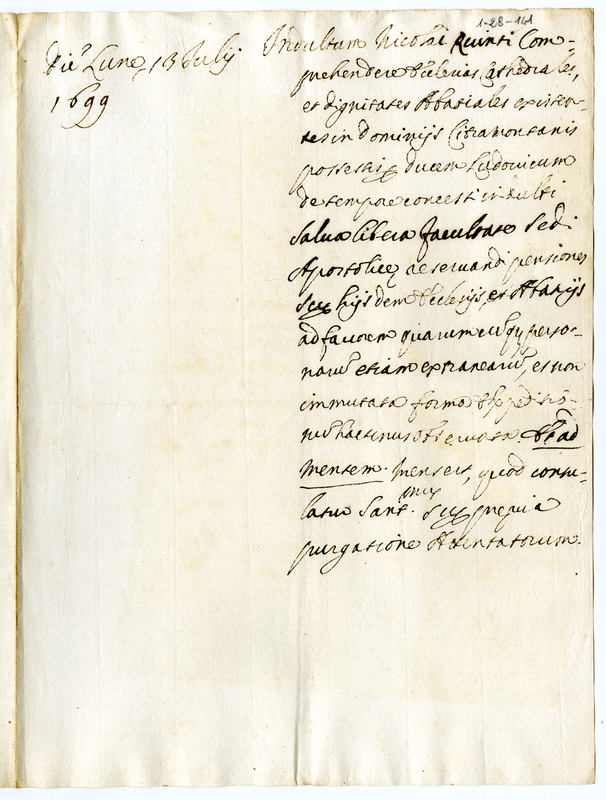 1-28-141
Die Lune 13 Julij
1699
Indultum Nicolai Quinti Com-
prehendere Ecclesias Cathedrales,
et dignitates Abatiales existen-
tes in Dominijs Citramontanis
possessis per Ducem Ludovicum
de tempore concessi indulti
salva libera facultate Sedi
Apostolice reservandi pensiones
super hijsdem Ecclesijs, et Abatijs
ad favorem quarumcumque perso-
narum etiam extranearum, et non
immutata forma expeditio-
num hactenus observata. Et ad
mentem. Mens est, quod consu-
latur Sanct.mus super previa
purgatione Attentatorum.